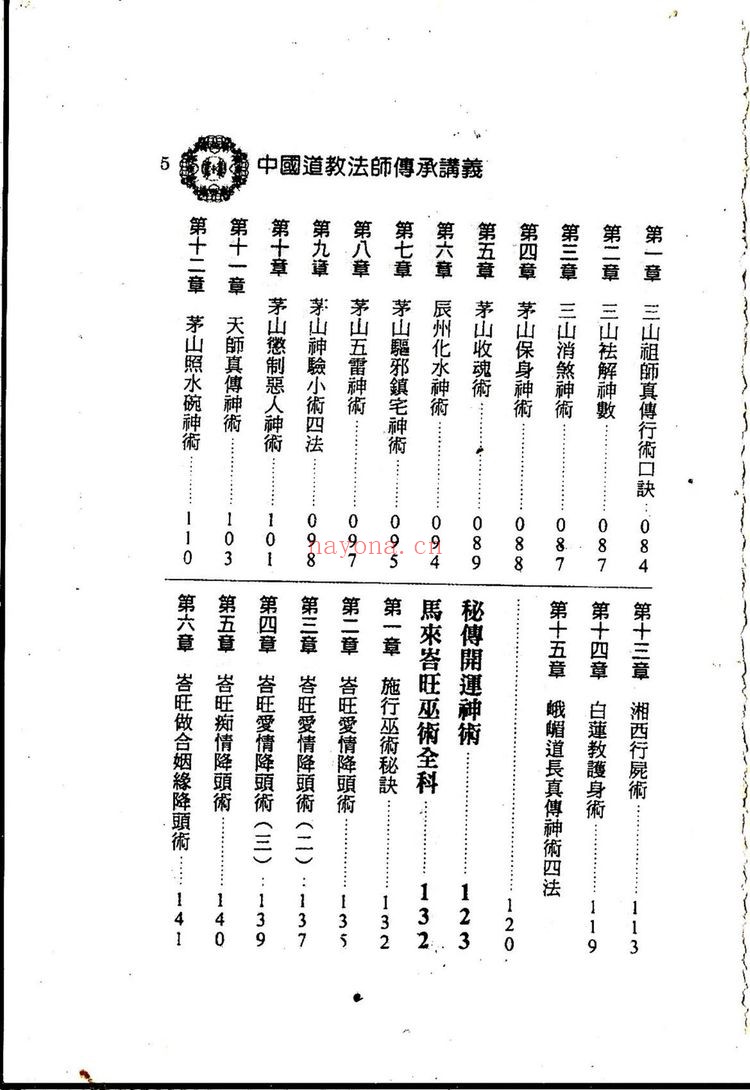 5
中國道教法師傳承講義
第一章 三山祖師真傳行術口訣……084
第二章 三山祛解神數……087
第三章 三山消煞神術……087
第四章 茅山保身神術……088
第五章 茅山收魂術……089
第六章 辰州化水神術……094
第七章 茅山驅邪鎮宅神術……095
第八章 茅山五雷神術……097
第九章 茅山神驗小術四法……098
第十章 茅山懲制惡人神術……101
第十一章 天師真傳神術……103
第十二章 茅山照水碗神術……110
第十三章 湘西行屍術……113
第十四章 白蓮教護身術……119
第十五章 峨嵋道長真傳神術四法
……120
秘傳開運神術……123
馬來峇旺巫術全科……132
第一章 施行巫術秘訣……132
第二章 峇旺愛情降頭術……135
第三章 峇旺愛情降頭術(二)……137
第四章 峇旺愛情降頭術(三)……139
第五章 峇旺痴情降頭術……140
第六章 峇旺做合姻緣降頭術……141
nayona.cn